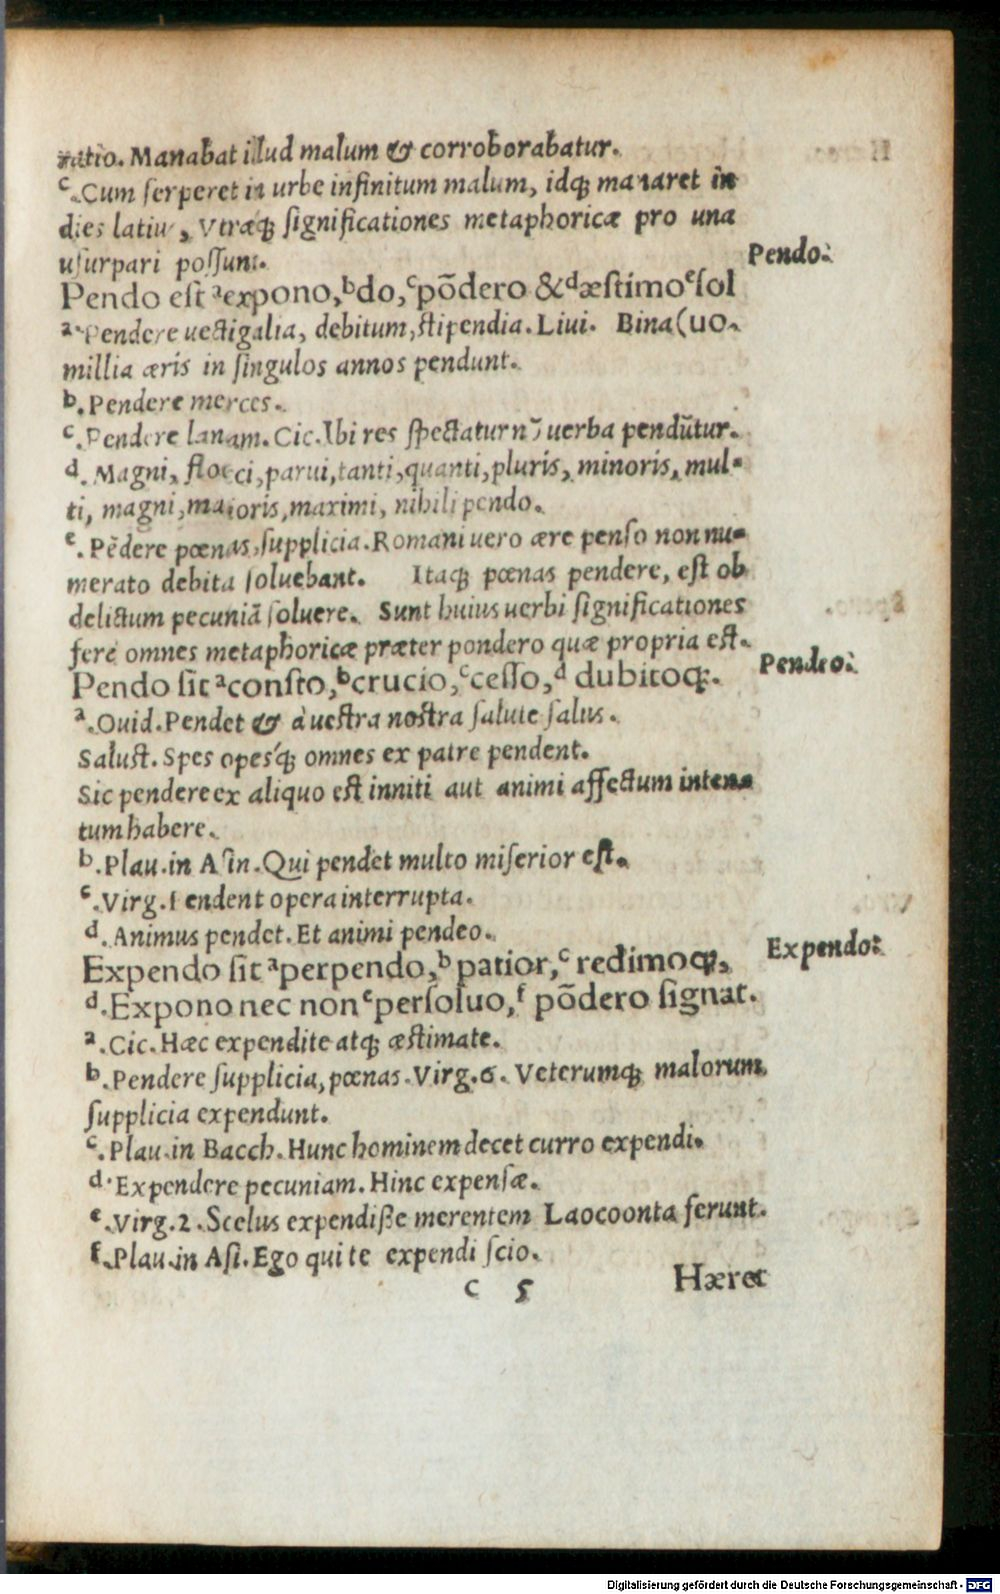 ratio. Manabat illud malum & corroborabatur.
c. Cum ſerperet in urbe infinitum malum, idq; manaret in
dies latius, Vtræq; ſignificationes metaphoricæ pro una
uſurpari poſſunt.
Pendo:
Pendo eſt a expono, b do, c põdero & d æſtimo e ſol
a. Pendere uectigalia, debitum, ſtipendia. Liui. Bina (uo.
millia æris in ſingulos annos pendunt.
b. Pendere merces.
c. Pendere lanam. Cic. Ibi res ſpectatur nõ uerba pendũtur.
d. Magni, flocci, parui, tanti, quanti, pluris, minoris, mul-
ti, magni, maioris, maximi, nihili pendo.
e. Pẽdere pœnas, ſupplicia. Romani uero ære penſo non nu-
merato debita ſoluebant. Itaq; pœnas pendere, eſt ob
delictum pecuniã ſoluere. Sunt huius uerbi ſignificationes
fere omnes metaphoricæ præter pondero quæ propria eſt.
Pendeo:
Pendo ſit a conſto, b crucio, c ceſſo, d dubitoq;.
a. Ouid. Pendet & à ueſtra noſtra ſalute ſalus.
Saluſt. Spes opeſq́; omnes ex patre pendent.
Sic pendere ex aliquo eſt inniti aut animi affectum inten-
tum habere.
b. Plau. in Aſin. Qui pendet multo miſerior eſt.
c. Virg. Pendent opera interrupta.
d. Animus pendet. Et animi pendeo.
Expendo:
Expendo ſit a perpendo, b patior, c redimoq;,
d. Expono nec non e perſoluo, f põdero ſignat.
a. Cic. Hæc expendite atq; æſtimate.
b. Pendere ſupplicia, pœnas. Virg. 6. Veterumq; malorum
ſupplicia expendunt.
c. Plau. in Bacch. Hunc hominem decet curro expendi.
d. Expendere pecuniam. Hinc expenſæ.
e. Virg. 2. Scelus expendiße merentem Laocoonta ferunt.
f. Plau. in Aſi. Ego qui te expendi ſcio.
c 5 Hæret
Digitalisierung gefördert durch die Deutsche Forschungsgemeinschaft - DFG